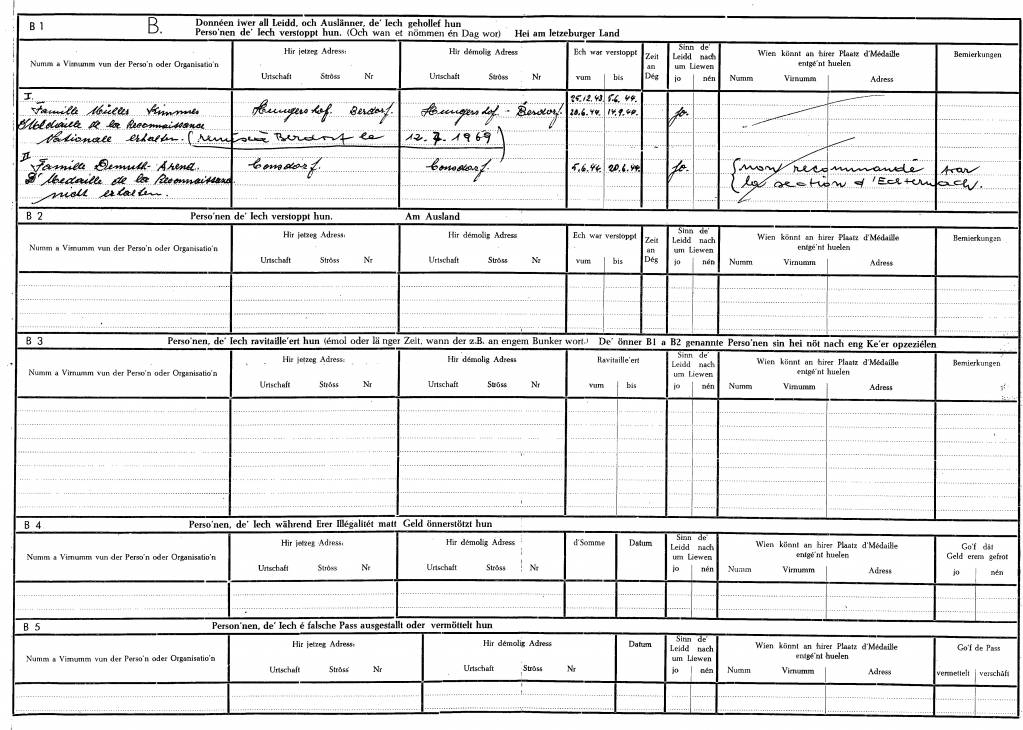 B 1 B. Donnéen iwer all Leidd, och Auslänner, de' Iech gehollef hun
Perso'nen de' Iech verstoppt hun. (Och wan et nömmen én Dag wor) Hei am letzeburger Land
Numm a Virnumm vun der Perso'n oder Organisatio'n
Hir jetzeg Adress:
Urtschaft Ströss Nr
Hir démolig Adress
Urtschaft Ströss Nr
Ech war verstoppt
vum bis
Zeit an Dég
Sinn de' Leidd nach um Liewen
jo nén
Wien könnt an hirer Plaatz d'Médaille entgé'nt huelen
Numm Virnumm Adress
Bemierkungen
I. 25.12.43. 5.6.44.
Famille Müller Kimmes Hungershof. Berdorf. Hungershof - Berdorf. 20.6.44. 14.9.44. jo.
d'Medaille de la Reconnaissance
Nationale erhalten. (remise à Berdorf le 12.7.1969)
II
Famille Demuth-Arend. Consdorf. Consdorf. 5.6.44. 20.6.44. jo. (non recommandé par
D'Medaille de la Reconnaissance la section d'Echternach.
nicht erhalten.
B 2 Perso'nen de' Iech verstoppt hun. Am Ausland
Numm a Virnumm vun der Perso'n oder Organisatio'n
Hir jetzeg Adress:
Urtschaft Ströss Nr
Hir démolig Adress
Urtschaft Ströss Nr
Ech war verstoppt
vum bis
Zeit an Dég
Sinn de' Leidd nach um Liewen
jo nén
Wien könnt an hirer Plaatz d'Médaille entgé'nt huelen
Numm Virnumm Adress
Bemierkungen
B 3 Perso'nen, de' Iech ravitaille'ert hun (émol oder länger Zeit, wann der z.B. an engem Bunker wort.) De' önner B1 a B2 genannte Perso'nen sin hei nöt nach eng Ke'er opzeziélen
Numm a Virnumm vun der Perso'n oder Organisatio'n
Hir jetzeg Adress:
Urtschaft Ströss Nr
Hir démolig Adress
Urtschaft Ströss Nr
Ravitaille'ert
vum bis
Sinn de' Leidd nach um Liewen
jo nén
Wien könnt an hirer Plaatz d'Médaille entgé'nt huelen
Numm Virnumm Adress
Bemierkungen
B 4 Perso'nen, de' Iech während Erer Illégalitét matt Geld önnerstötzt hun
Numm a Virnumm vun der Perso'n oder Organisatio'n
Hir jetzeg Adress:
Urtschaft Ströss Nr
Hir démolig Adress
Urtschaft Ströss Nr
d'Somme
Datum
Sinn de' Leidd nach um Liewen
jo nén
Wien könnt an hirer Plaatz d'Médaille entgé'nt huelen
Numm Virnumm Adress
Go'f dât Geld erem gefrot
jo nén
B 5 Person'nen, de' Iech é falsche Pass ausgestallt oder vermöttelt hun
Numm a Virnumm vun der Perso'n oder Organisatio'n
Hir jetzeg Adress:
Urtschaft Ströss Nr
Hir démolig Adress
Urtschaft Ströss Nr
Datum
Sinn de' Leidd nach um Liewen
jo nén
Wien könnt an hirer Plaatz d'Médaille entgé'nt huelen
Numm Virnumm Adress
Go'f de Pass
vermettelt verschâft